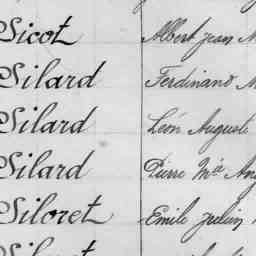 Sicot Albert Jean M
Silard Ferdinand M
Silard Léon Auguste
Silard Pierre Mie Ang
Siloret Emile Julien